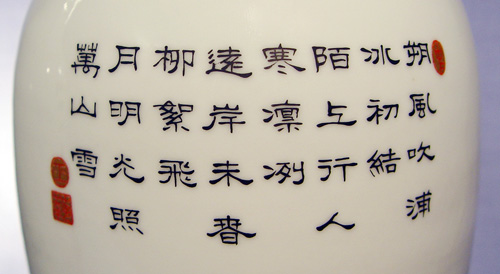 朔風吹浦
冰初結
陌上行人
寒凛冽
遠岸未春
柳絮飛
月明光照
萬山雪